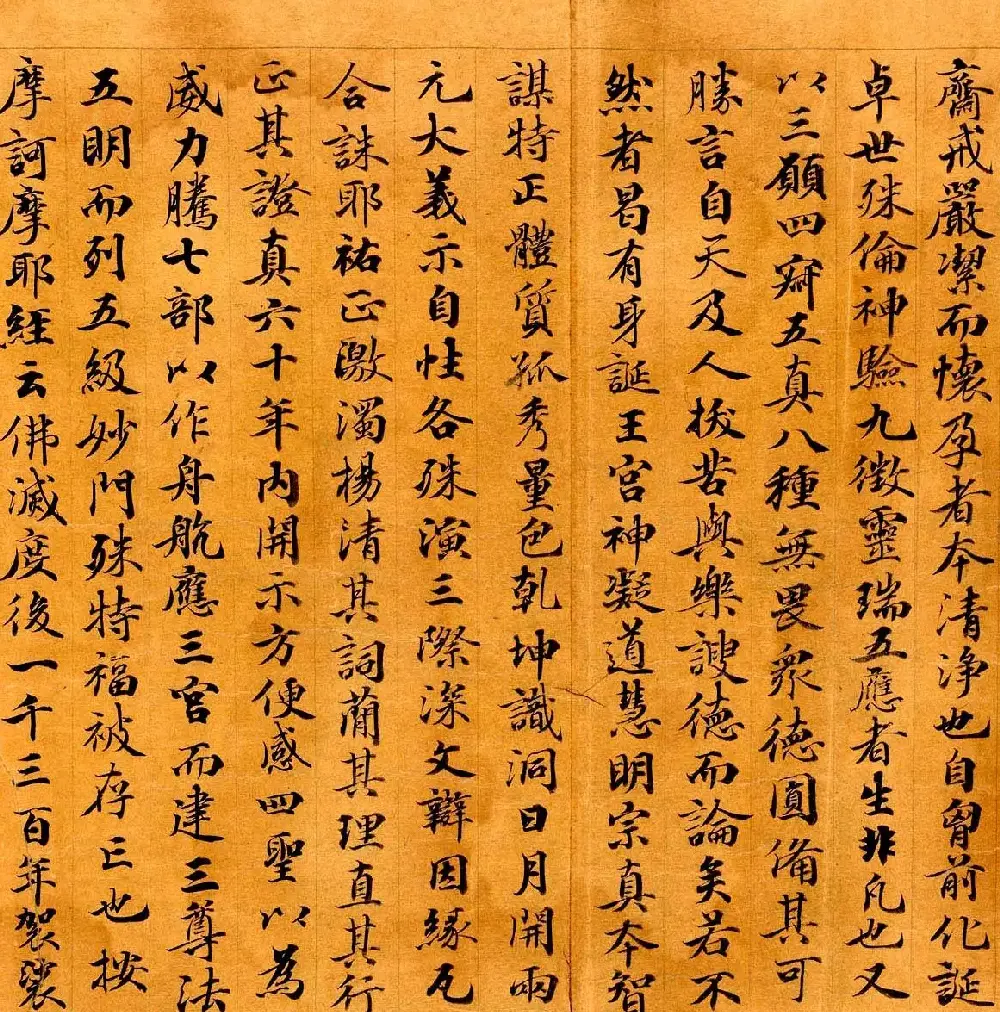 齋戒嚴潔而懷孕者本清淨也自胷前化誕
卓世殊倫神驗九徵靈瑞五應者生非凡也又
以三願四寂五真八種無畏眾德圓俻其可
勝言自天及人拔苦與樂謏德而論矣若不
然者曷有身誕王宮神凝道慧明宗真本智
謀特正體質孤秀量包乾坤識洞日月開兩
元大義示自性各殊演三際深文辯因緣瓦
合誅耶祐正激濁揚清其詞蕳其理直其行
正其證真六十年內開示方便感四聖以為
威力騰七部以作舟航應三宮而建三尊法
五明而列五級妙門殊特福被存亡也按
摩訶摩耶經云佛滅度後一千三百年袈裟